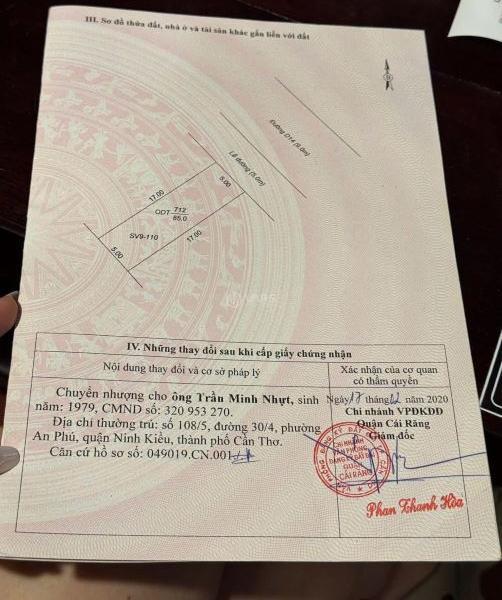 III. Sơ đồ thửa đất, nhà ở và tài sản khác gắn liền với đất
Đường D14 (9.0m)
Lề đường (5.0m)
17.00
5.00
ODT 712
85.0
SV9-110
17.00
5.00
IV. Những thay đổi sau khi cấp giấy chứng nhận
Nội dung thay đổi và cơ sở pháp lý
Xác nhận của cơ quan
có thẩm quyền
Chuyển nhượng cho ông Trần Minh Nhựt, sinh
năm: 1979, CMND số: 320 953 270.
Địa chỉ thường trú: số 108/5, đường 30/4, phường
An Phú, quận Ninh Kiều, thành phố Cần Thơ.
Căn cứ hồ sơ số: 049019.CN.001
Ngày 17 tháng 12 năm 2020
Chi nhánh VPĐKĐĐ
Quận Cái Răng
Giám đốc
CHI NHÁNH
VĂN PHÒNG
ĐĂNG KÝ ĐẤT ĐAI
QUẬN
CÁI RĂNG
Phan Thanh Hòa